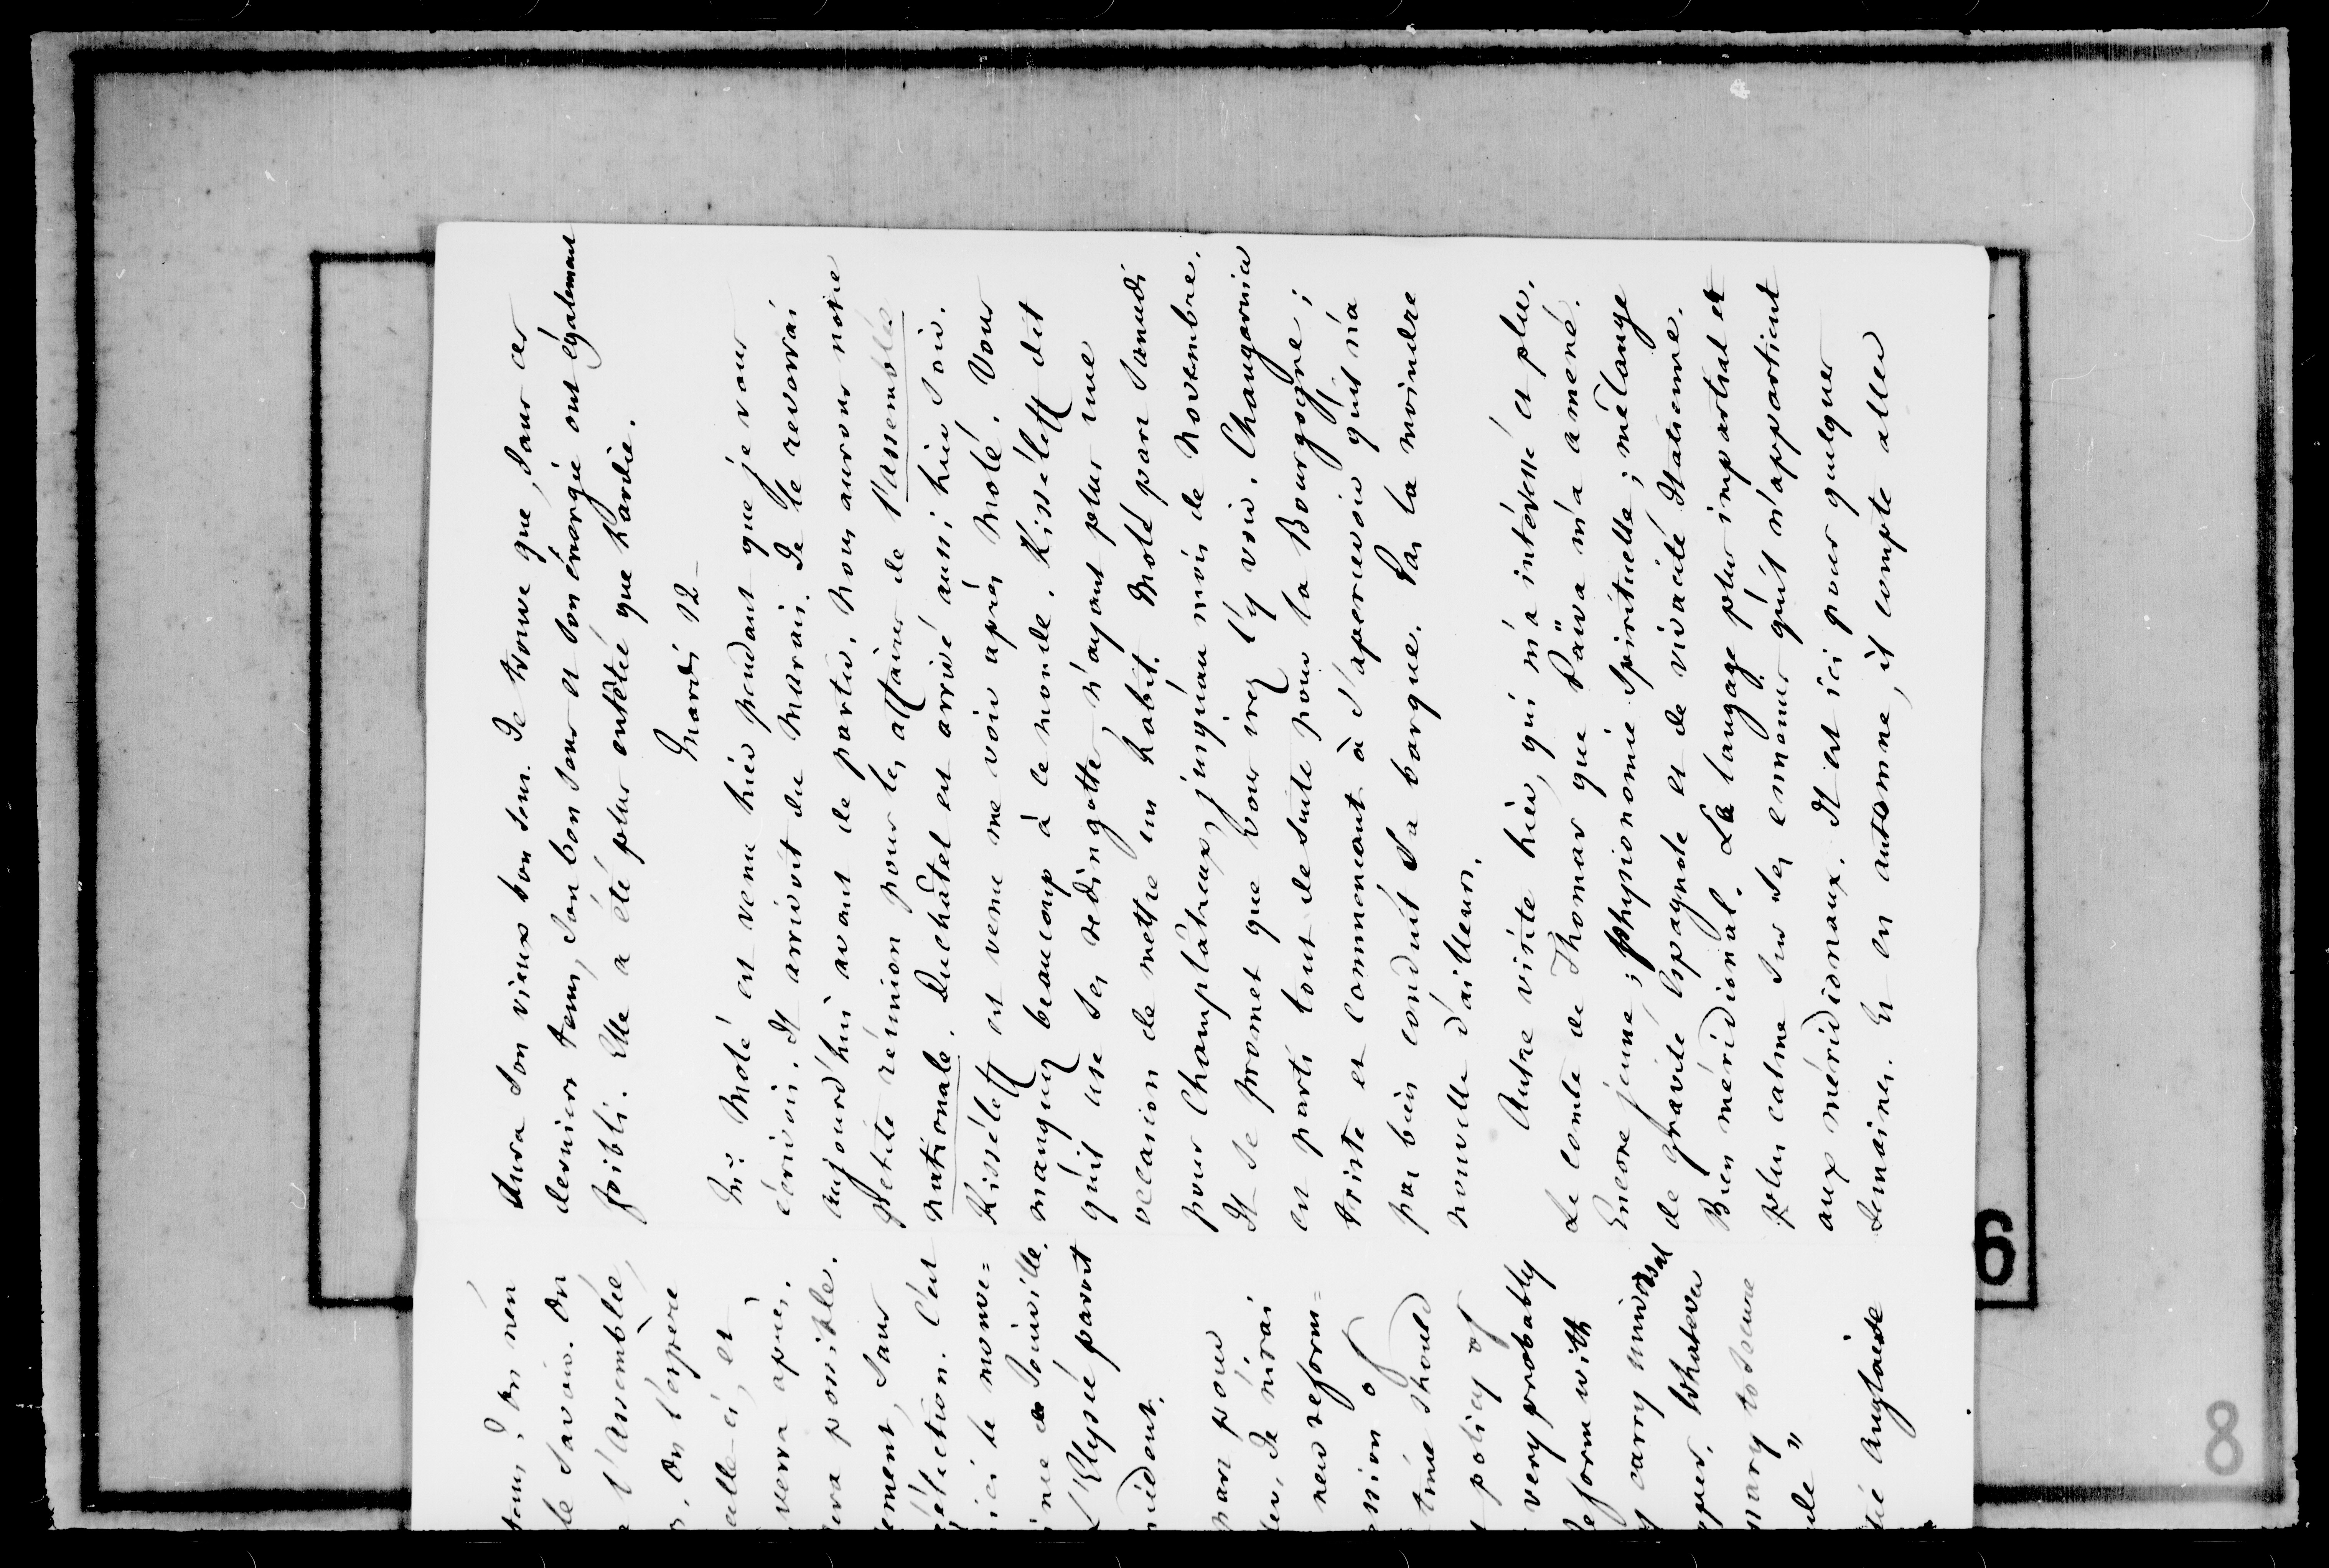 tems ; on n'en
le savoir. On
l'Assemblée,
On l'espère
celle-ci, et
verra après.
sera possible.
ement, sans
élection. C'est
ici le mouve=
de Joinville.
L'Elysée paroit
sident.
pour
Je n'irai
new reform=
sion of
time should
policy of
very probably
reform with
carry universal
pper. Whatever
mary to secure
ule"
Anglaise
Aura son vieux bon sens. Je trouve que, dans ces
derniers tems, son bon sens et son énergie ont également
foibli. Elle a été plus entêtée que hardie.
Mardi 12_
Mr. Molé est venu hier pendant que je vous
écrivois. Il arrivoit du Marais. Je le reverrai
aujourd'hui avant de partir. Nous aurons notre
petite réunion pour les affaires de l'assemblée
nationale. Duchâtel est arrivé aussi hier soir.
Kisséleff est venu me voir après Molé. Vous
manquez beaucoup à ce monde. Kisséleff dit
qu'il use ses redingottes, n'ayant plus une
occasion de mettre un habit. Molé part samedi
pour Champlâtreux, jusqu'au mois de Novembre.
Il se promet que vous irez l'y voir. Changarnier
est parti tout de suite pour la Bourgogne ;
triste et commençant à s'apercevoir qu'il n'a
pas bien conduit sa barque. Pas la moindre
nouvelle d'ailleurs.
Autre visite hier, qui m'a intéressé et plu.
Le comte de Thomar que Païva m'a amené.
Encore jeune ; physionomie spirituelle ; mélange
de gravité Espagnole et de vivacité Italienne.
Bien méridional. Le langage plus impartial et
plus calme sur ses ennemis qu'il n'appartient
aux méridionaux. Il est ici pour quelques
semaines. Et en automne, il compte aller
6
8